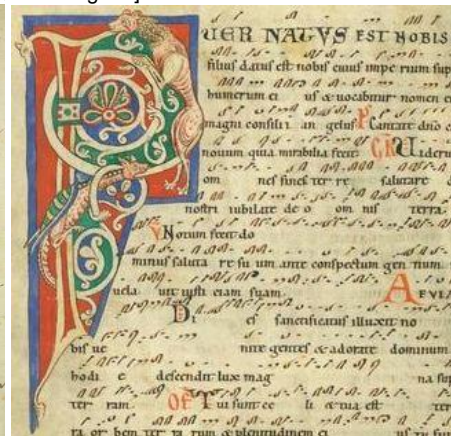 PUER NATVS EST NOBIS
filius datus est nobis cuius impe rium sup
humerum ei us & uocabitur nomen e
magni consilii an gelus P Cantate dño c
nouum quia mirabilia fecit GR Uideru
om nes fines ter re salutare
nostri iubilate de o om nis terra
V Notum fecit do
minus saluta re su um ante conspectum gen tium
uela uit iusti ciam suam. A EVIA
Di es sanctificatus illuxit no
bis ue nite gentes & adorate dominum
hodi e descendit lux mag na sup
ter ram. OF Tui sunt ce li & tua est ter
ra or bem ter ra rum & plenitudinem ei us tu fun